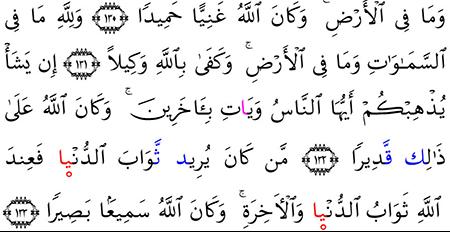 وَمَا فِي ٱلْأَرْضِ ۚ وَكَانَ ٱللَّهُ غَنِيًّا حَمِيدًا ﴿١٣٠﴾ وَلِلَّهِ مَا فِي
ٱلسَّمَـٰوَٰتِ وَمَا فِي ٱلْأَرْضِ ۚ وَكَفَىٰ بِٱللَّهِ وَكِيلًا ﴿١٣١﴾ إِن يَشَأْ
يُذْهِبْكُمْ أَيُّهَا ٱلنَّاسُ وَيَاتِ بِـَٔاخَرِينَ ۚ وَكَانَ ٱللَّهُ عَلَىٰ
ذَٰلِك قَّدِيرًا ﴿١٣٢﴾ مَّن كَانَ يُرِيد ثَّوَابَ ٱلدُّنْيا فَعِندَ
ٱللَّهِ ثَوَابُ ٱلدُّنْيا وَٱلْأَخِرَةِ ۚ وَكَانَ ٱللَّهُ سَمِيعًا بَصِيرًا ﴿١٣٣﴾